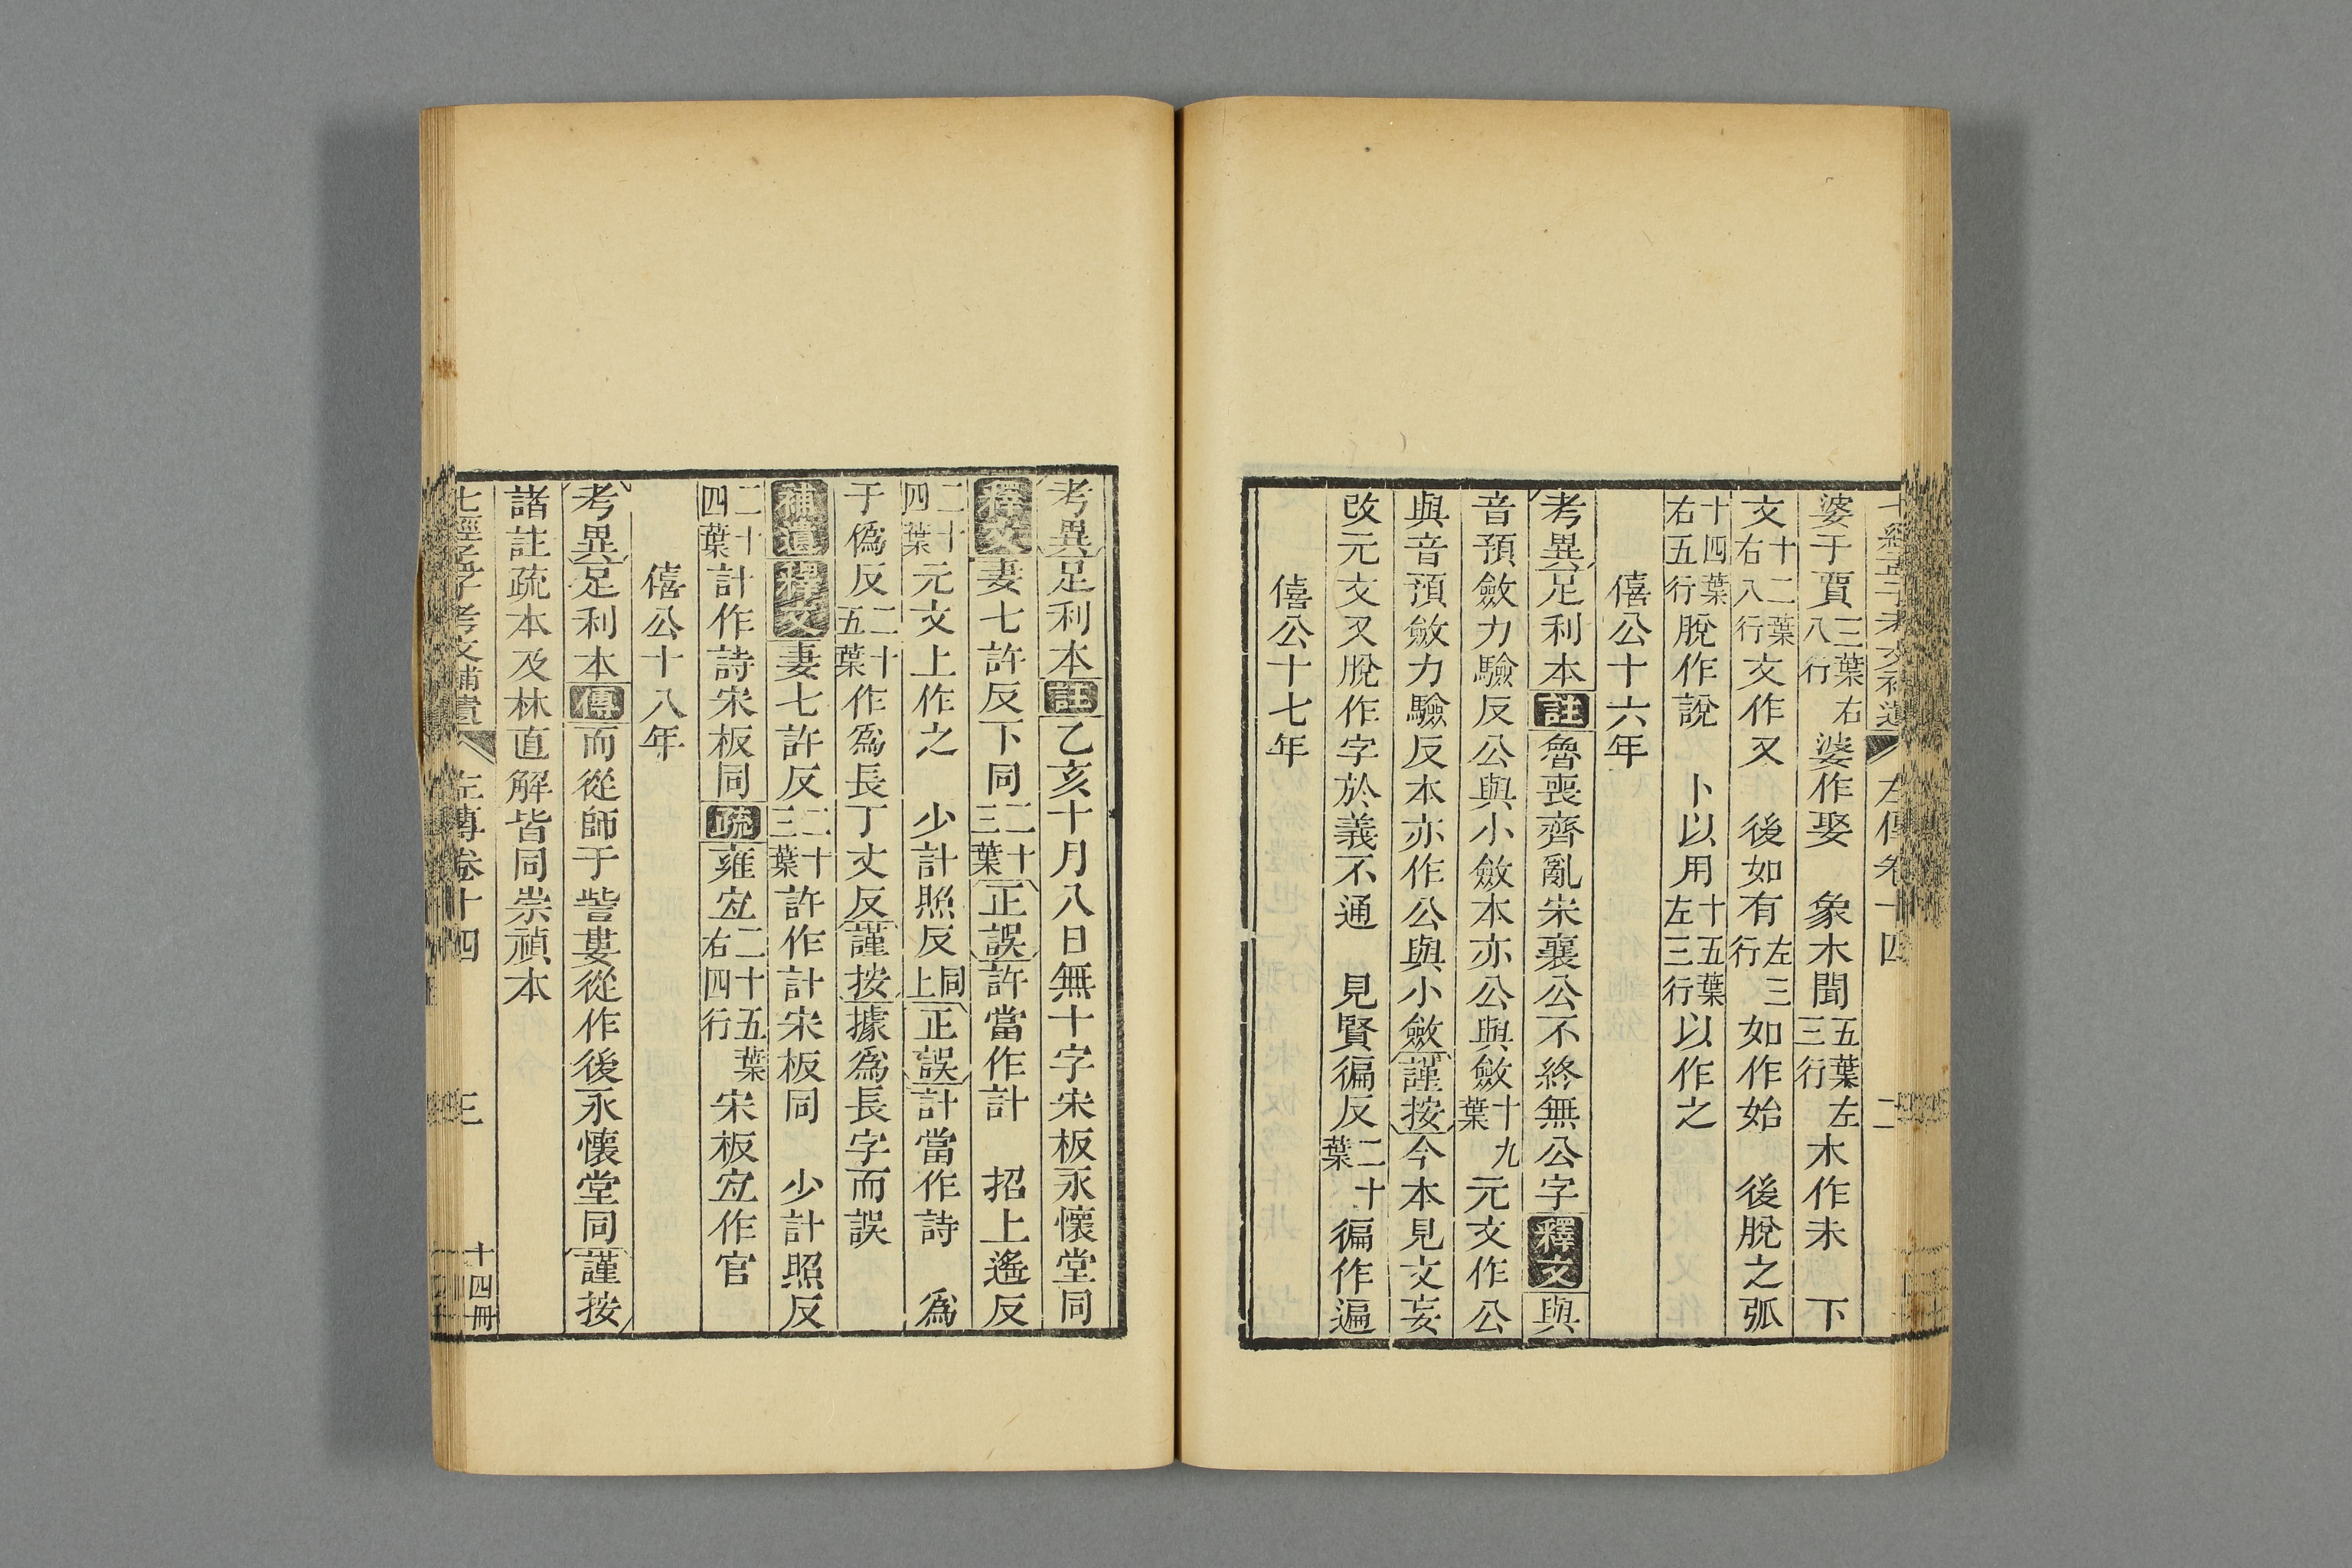 七經孟子考文補遺 左傳卷十四 二
婆于賈三葉右八行婆作娶 象木聞五葉左三行木作未 下
文十二葉右八行文作又 後如有左三行如作始 後脫之弧
十四葉右五行脫作說 卜以用十五葉左三行以作之
僖公十六年
考異足利本註魯喪齊亂宋襄公不終無公字釋文與
音預斂力驗反公與小斂本亦公與斂十九葉元文作公
與音預斂力驗反本亦作公與小斂謹按今本見文妄
改元文又脫作字於義不通 見賢徧反二十葉徧作遍
僖公十七年
考異足利本註乙亥十月八日無十字宋板永懷堂同
釋文妻七許反下同二十三葉正誤許當作計 招上遙反
二十四葉元文上作之 少計照反同上正誤計當作詩 爲
于僞反二十五葉作爲長丁丈反謹按據爲長字而誤
補遺釋文妻七許反二十三葉許作計宋板同 少計照反
二十四葉計作詩宋板同疏雍宐二十五葉右四行宋板宐作官
僖公十八年
考異足利本傳而從師于訾婁從作後永懷堂同謹按
諸註疏本及林直解皆同崇禎本
七經孟子考文補遺 左傳卷十四 三 十四冊